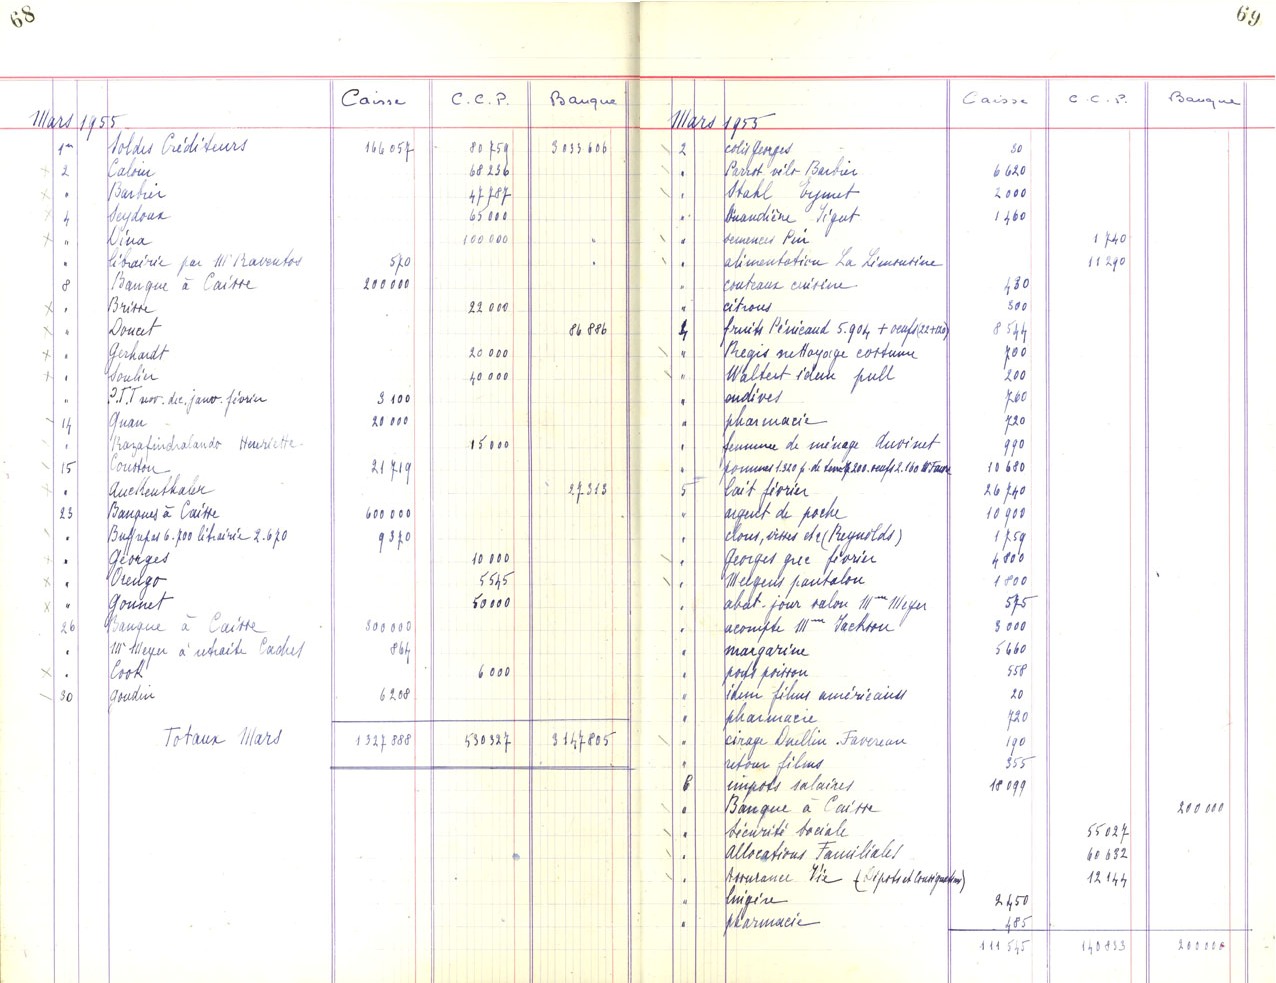 68
Caisse C.C.P. Banque
Mars 1955
1er Soldes Créditeurs 166057 80759 3033606
x 2 Caloin 68236
x " Barbier 47787
x 4 Seydoux 65000
x " Dina 100000 "
" librairie par Mr Raventos 570 "
8 Banque à Caisse 200000
x " Brisse 22000
x " Doucet 86886
x " Gerhardt 20000
x " Soulier 40000
" P.T.T nov. dec. janv. février 3100
14 Quan 20000
" Razafindralando Henriette 15000
15 Courton 21719
" Auckenthaler 27313
23 Banques à Caisse 600000
" 6.700 librairie 2.670 9370
x " Georges 10000
x " Orengo 5545
x " Gonnet 50000
26 Banque à Caisse 300000
" Mr Meyer à retraite Cachet 864
x " Cook 6000
30 Goudin 6208
Totaux Mars 1327888 530327 3147805
69
Caisse C.C.P. Banque
Mars 1955
2 colis Georges 30
" Parrot vélo Barbier 6620
" Stahl Eymet 2000
" Sigut 1460
" semences Pin 1740
" alimentation La Limousine 11290
" couteaux cuisine 430
" citrons 300
4 fruits Pénicaud 5.904 + oeufs 8544
" Régis nettoyage costume 700
" Waltert idem pull 200
" endives 760
" pharmacie 720
" femme de ménage 990
" pommes 1.320 p. de terre 7.200. oeufs 2.160 10680
5 lait février 26740
" argent de poche 10900
" clous, visses etc (Reynolds) 1759
" Georges grec février 4800
" pantalon 1800
" abat-jour salon Mme Meyer 575
" acompte Mme Jackson 3000
" margarine 5660
" poisson 558
" idem films américains 20
" pharmacie 720
" cirage Duellin. Favereau 190
" retour films 355
6 impots salaires 18099
" Banque à Caisse 200000
" Sécurité Sociale 55027
" Allocations Familiales 60632
" Assurance Vie (Dépots et Consignations) 12144
" lingère 2450
" pharmacie 485
111545 140833 200000